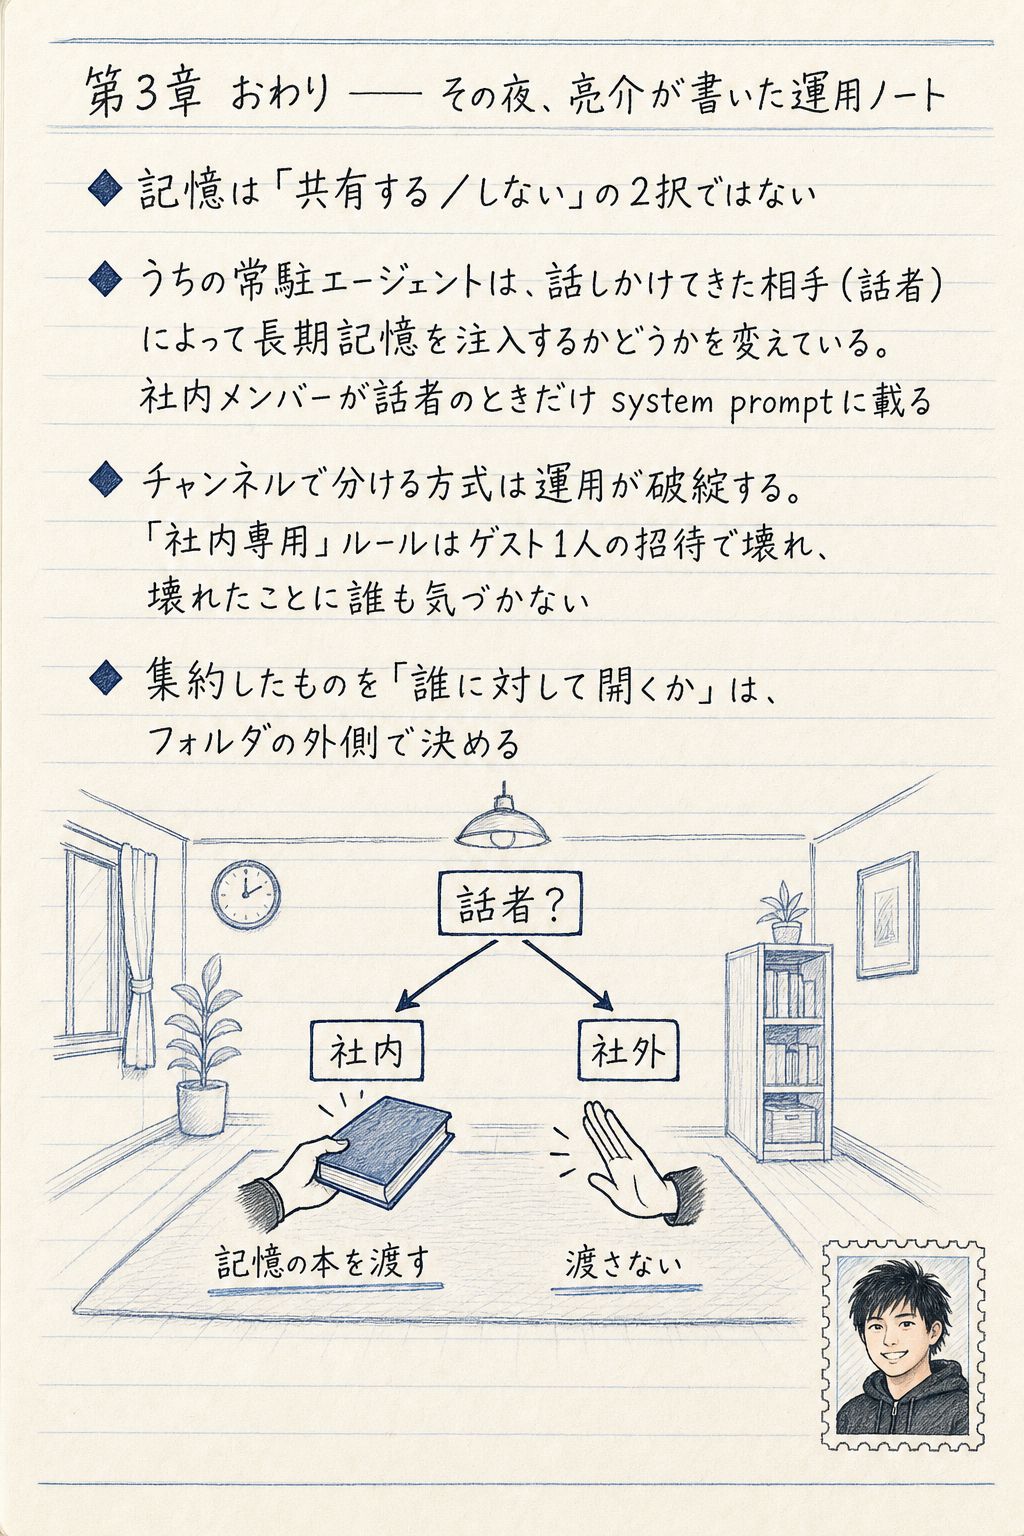 第3章 おわり —— その夜、亮介が書いた運用ノート
◆ 記憶は「共有する／しない」の2択ではない
◆ うちの常駐エージェントは、話しかけてきた相手（話者）
によって長期記憶を注入するかどうかを変えている。
社内メンバーが話者のときだけ system promptに載る
◆ チャンネルで分ける方式は運用が破綻する。
「社内専用」ルールはゲスト1人の招待で壊れ、
壊れたことに誰も気づかない
◆ 集約したものを「誰に対して開くか」は、
フォルダの外側で決める
話者？
社内
社外
記憶の本を渡す
渡さない